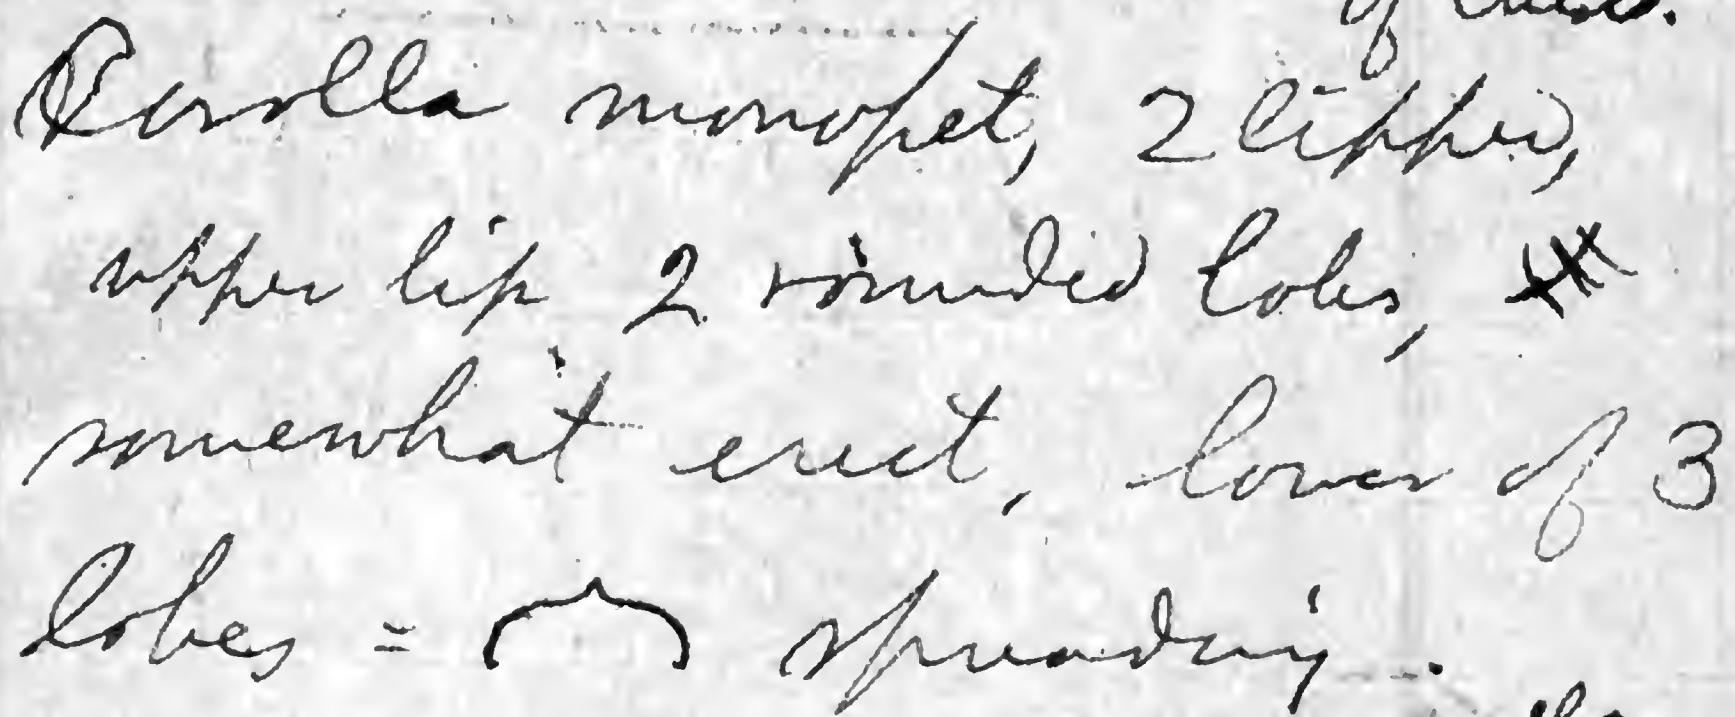 of
Corolla monopet, 2 lipped,
upper lip 2 rounded lobes,
somewhat erect, lower of 3
lobes = spreading.